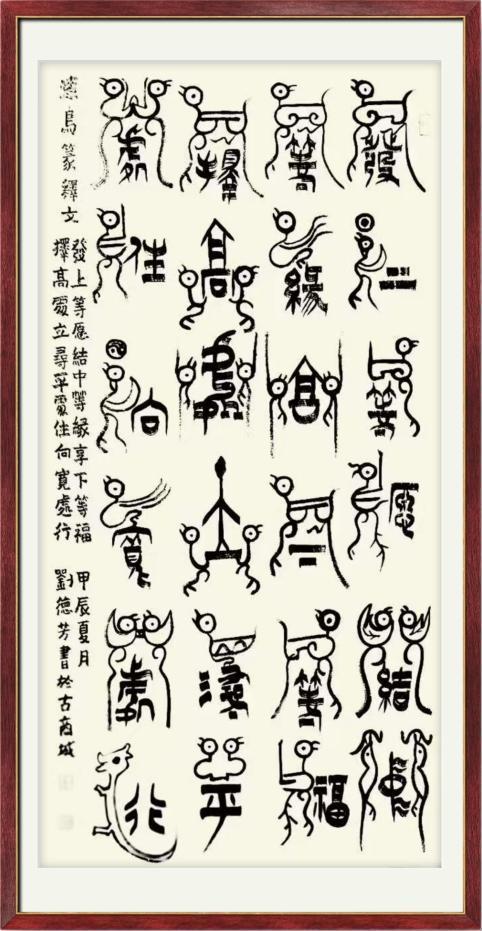 發上等愿結中
等緣享下等福
擇高處立尋平
處住向寬處行
鳥篆釋文
發上等愿結中等緣享下等福
擇高處立尋平處住向寬處行
甲辰夏月
劉德芳書於古商城